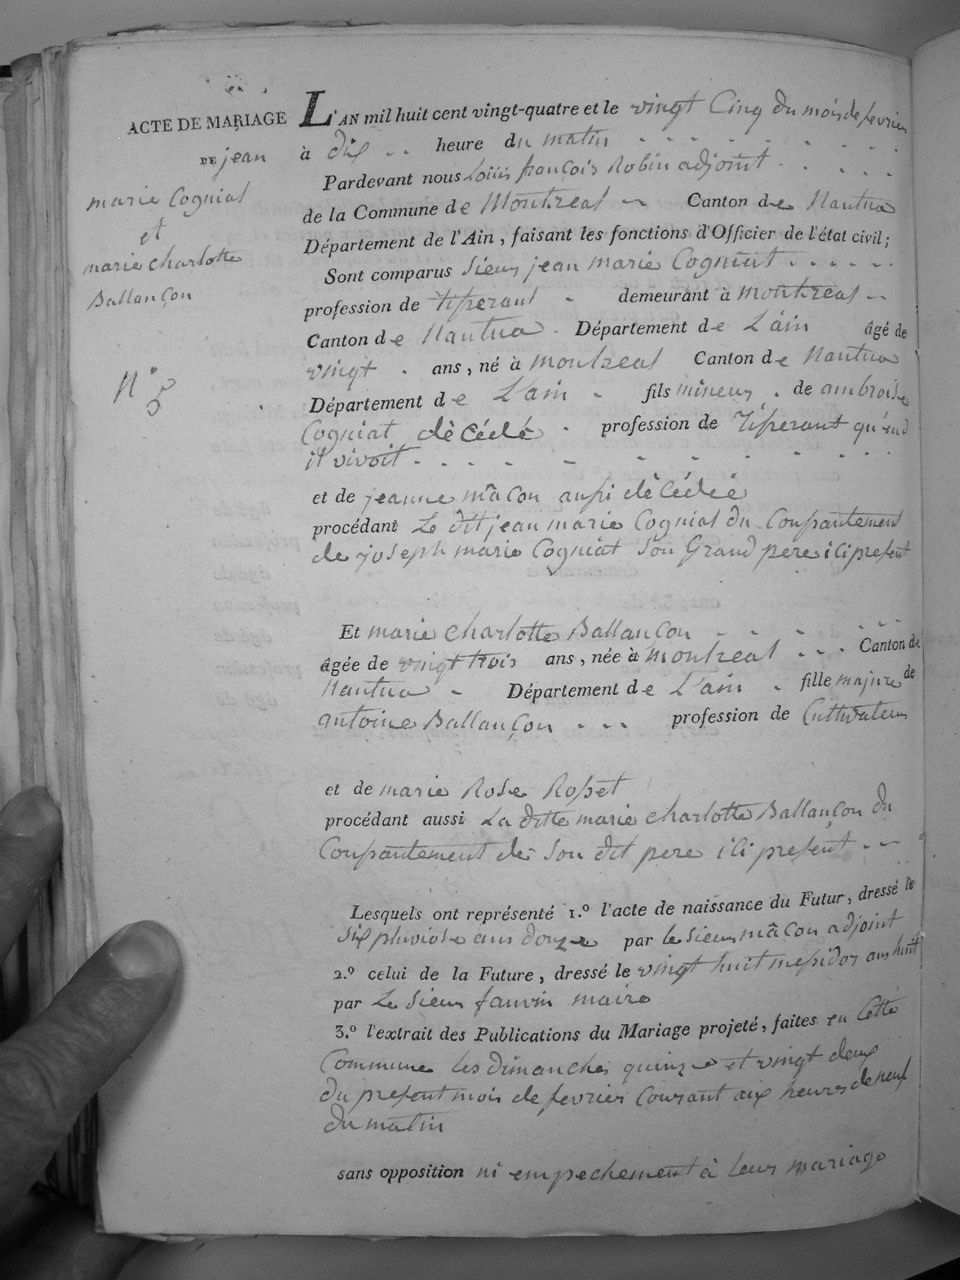 ACTE DE MARIAGE
DE jean
marie Cogniat
et
marie charlotte
Ballançon
N.° 3
L'AN mil huit cent vingt-quatre et le vingt Cinq du mois de fevrier
à dix heure du matin
Pardevant nous Loüis françois Robin adjoint
de la Commune de Montreal Canton de Nantua
Département de l'Ain, faisant les fonctions d'Officier de l'état civil;
Sont comparus Sieur jean marie Cogniat
profession de tisserant demeurant à montreal
Canton de Nantua Département de L'ain âgé de
vingt ans, né à montreal Canton de Nantua
Département de L'ain fils mineur de ambroise
Cogniat dècédé profession de tisserant quand
il vivoit
et de jeanne mâcon aussi dècédée
procédant Le dit jean marie Cogniat du Consantement
de joseph marie Cogniat Son Grand pere ici present
Et marie charlotte Ballançon
âgée de vingt trois ans, née à montreal Canton de
Nantua Département de L'ain fille majure de
antoine Ballançon profession de Cultivateur
et de marie Rose Rosset
procédant aussi La ditte marie charlotte Ballançon du
Consantement de Son dit pere ici present
Lesquels ont représenté 1.° l'acte de naissance du Futur, dressé le
six pluviose ans douze par le sieur mâcon adjoint
2.° celui de la Future, dressé le vingt huit messidor ans huit
par Le sieur fauvin maire
3.° l'extrait des Publications du Mariage projeté, faites en Cette
Commune Les dimanches quinze et vingt deux
du present mois de fevrier Courant aux heures de neuf
du matin
sans opposition ni empechement à leur mariage